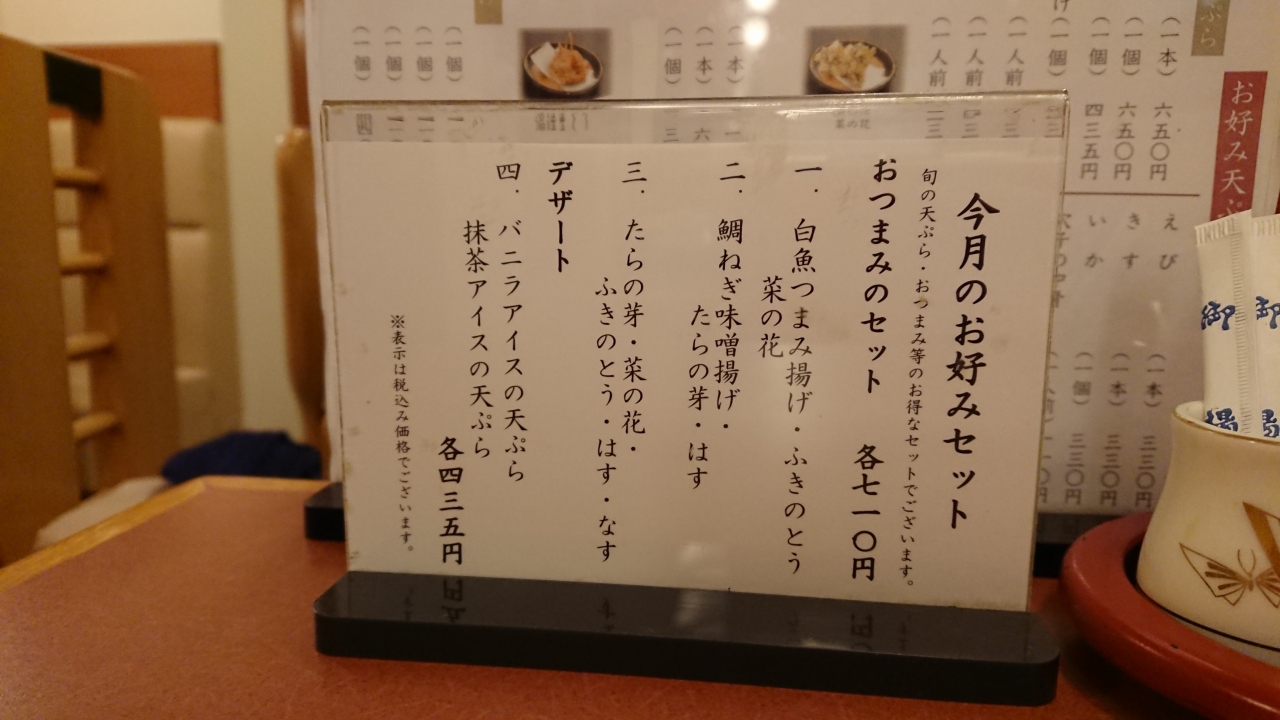 今月のお好みセット
旬の天ぷら・おつまみ等のお得なセットでございます。
おつまみのセット 各七一〇円
一. 白魚つまみ揚げ・ふきのとう
菜の花
二. 鯛ねぎ味噌揚げ・
たらの芽・はす
三. たらの芽・菜の花・
ふきのとう・はす・なす
デザート
四. バニラアイスの天ぷら
抹茶アイスの天ぷら
各四三五円
※表示は税込み価格でございます。
お好み天ぷ
(一本) 六五〇円
(一個) 六五〇円
(一個) 四三五円
(一個)
(一人前)
(一人前)
(一人前)
(一本)
(一本)
(一個)
(一個)
(一個)
(一個)
(一個)
えび (一本) 三三〇円
きす (一本) 三三〇円
いか (一個) 三三〇円
菜の花